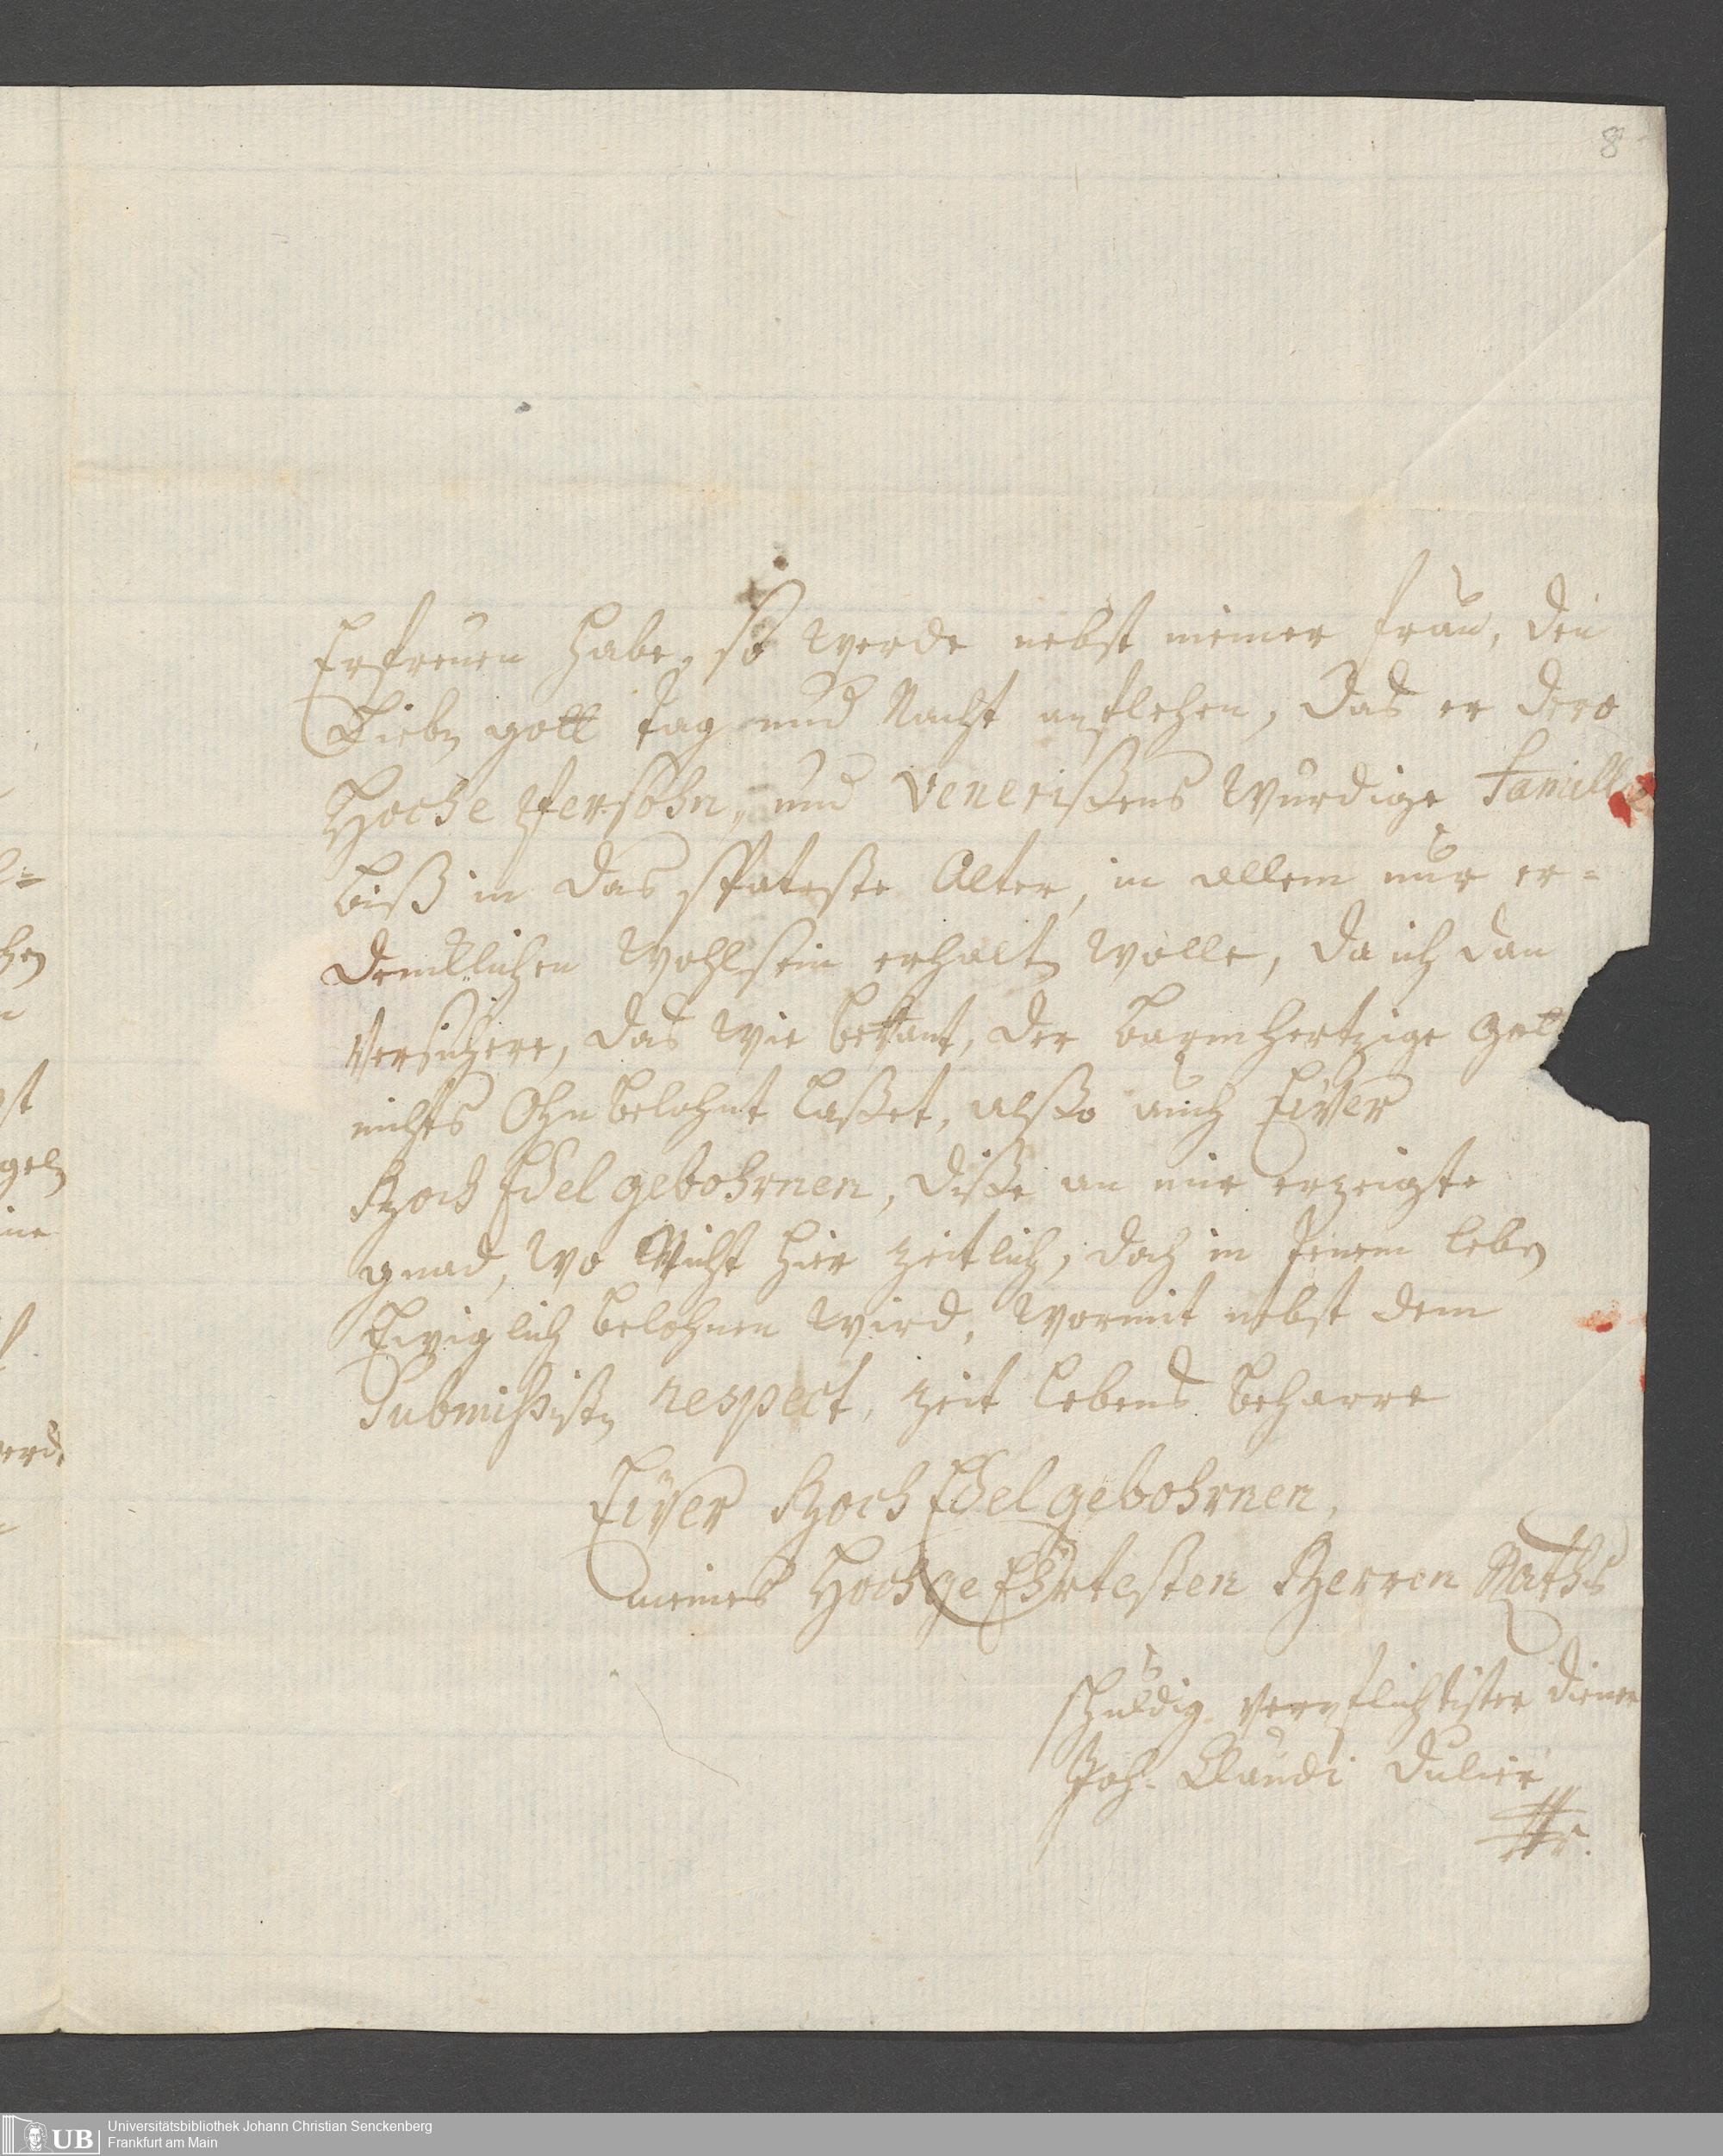 8
Erfreuen habe, so werde nebst meiner frau, den
Lieben gott tag und Nacht anflehen, das er dero
Hoche Persohn, und venerissens würdige Famill
biß in das spateste Alter, in allem nur er=
dencklichen wohlsein erhalten wolle, da ich dan
versichere, das wie bekant, der barmhertzige gott
nichts Ohnbelohnt lasset, also auch Eüer
HochEdelgebohrnen, disse an mir erzeigte
gnad, wo Nicht hier zeitlich, doch in Jenem leben
Ewiglich belohnen wird, wormit nebst dem
Submissisten respect, zeit lebens beharre
Eüer HochEdelgebohrnen,
meines HochgeEhrtesten Herren Raths
schuldig verpflichtister diener
Joh. Claudi Dulier
Universitätsbibliothek Johann Christian Senckenberg
Frankfurt am Main
UB